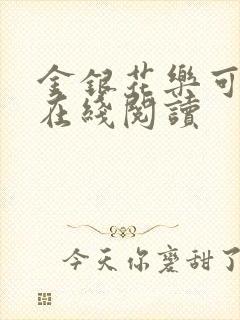 金銀花樂可
在綫閱讀
今天你磨甜了